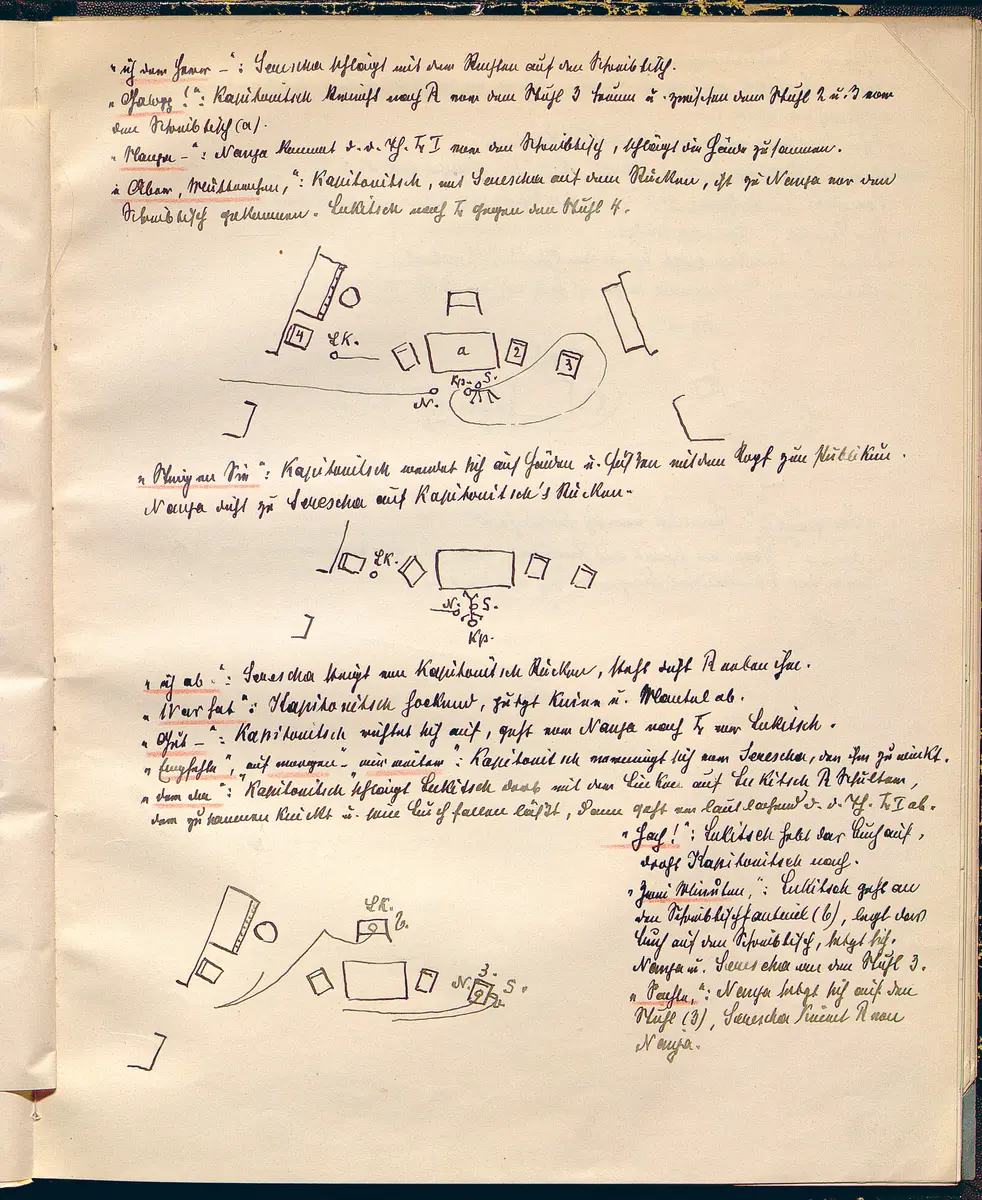 "ich dem Herrn –": Serescha schlägt mit der Rechten auf den Schreibtisch.
"Galopp!": Kapitonitsch kriecht nach R um den Stuhl 3 herum u. zwischen dem Stuhl 2 u. 3 vor
den Schreibtisch (a).
"Nanja –": Nanja kommt d. d. Th. L I vor den Schreibtisch, schlägt die Hände zusammen.
"Aber, Mütterchen,": Kapitonitsch, mit Serescha auf dem Rücken, ist zu Nanja vor den
Schreibtisch gekommen. Lukitsch nach L gegen den Stuhl 4.
4
LK.
a
2
3
Kp. S.
N.
"Steigen Sie": Kapitonitsch wendet sich auf Händen u. Füßen mit dem Kopf zum Publikum.
Nanja dicht zu Serescha auf Kapitonitsch's Rücken.
LK.
N. S.
Kp.
"ich ab –": Serescha steigt von Kapitonitsch Rücken, steht dicht R neben ihm.
"Wer hat": Kapitonitsch hockend, putzt Kniee u. Mantel ab.
"Gut –": Kapitonitsch richtet sich auf, geht vor Nanja nach L vor Lukitsch.
"Empfehle", "auf morgen" – "nur weiter": Kapitonitsch verneigt sich vor Serescha, der ihm zuwinkt.
"dem der": Kapitonitsch schlägt Lukitsch derb mit der Linken auf Lukitsch R Schulter,
der zusammen knickt u. sein Buch fallen läßt, dann geht er laut lachend d. d. Th. L I ab.
"Hoch!": Lukitsch hebt das Buch auf,
droht Kapitonitsch nach.
"Zwei Minuten,": Lukitsch geht an
den Schreibtischfauteuil (b), legt das
Buch auf den Schreibtisch, setzt sich.
Nanja u. Serescha an den Stuhl 3.
"Sechs,": Nanja setzt sich auf den
Stuhl (3), Serescha kniet R von
Nanja.
LK.
b.
N. 3. S.